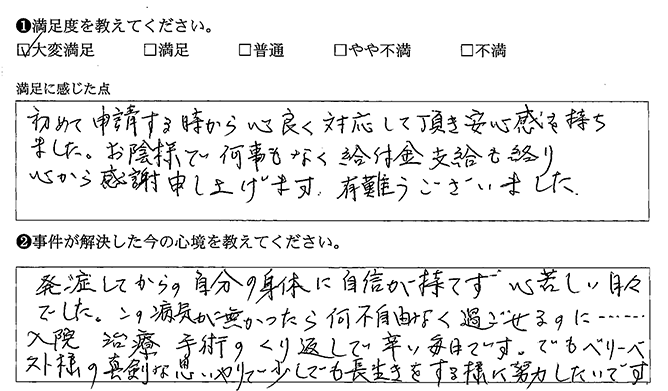 ❶満足度を教えてください。
☑大変満足 □満足 □普通 □やや不満 □不満
満足に感じた点
初めて申請する時から心良く対応して頂き安心感を持ち
ました。お陰様で何事もなく給付金支給も終り
心から感謝申し上げます。有難うございました。
❷事件が解決した今の心境を教えてください。
発症してからの自分の身体に自信が持てず心苦しい日々
でした。この病気が無かったら何不自由なく過ごせるのに……
入院 治療 手術のくり返しで辛い毎日です。でもベリーベ
スト様の真剣な思いやりで少しでも長生きをする様に努力したいです